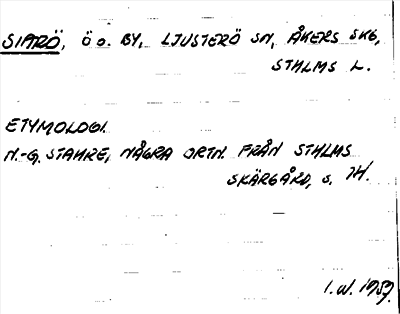 SIARÖ, Ö O. BY, LJUSTERÖ SN, ÅKERS SKG,
STHLMS L.
ETYMOLOGI.
N.-G. STAHRE, NÅGRA ORTN. FRÅN STHLMS
SKÄRGÅRD, S. 14.
I.W. 1959.